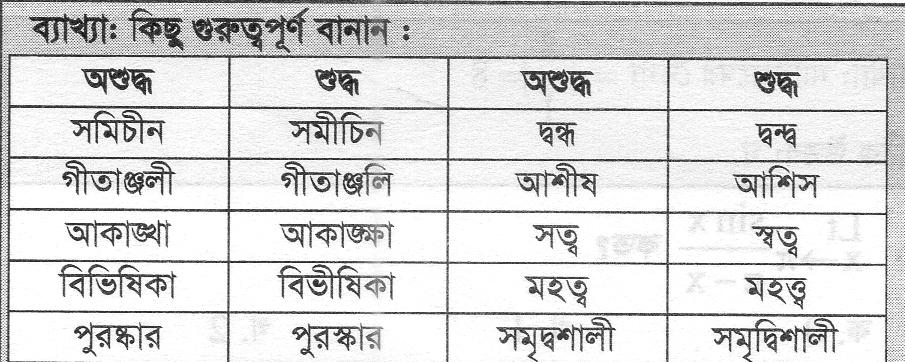 ব্যাখ্যা: কিছু গুরুত্বপূর্ণ বানান :
অশুদ্ধ শুদ্ধ অশুদ্ধ শুদ্ধ
সমিচীন সমীচিন দ্বন্ধ দ্বন্দ্ব
গীতাঞ্জলী গীতাঞ্জলি আশীষ আশিস
আকাঙ্খা আকাঙ্ক্ষা সত্ব স্বত্ব
বিভিষিকা বিভীষিকা মহত্ব মহত্ত্ব
পুরষ্কার পুরস্কার সমৃদ্বশালী সমৃদ্বিশালী